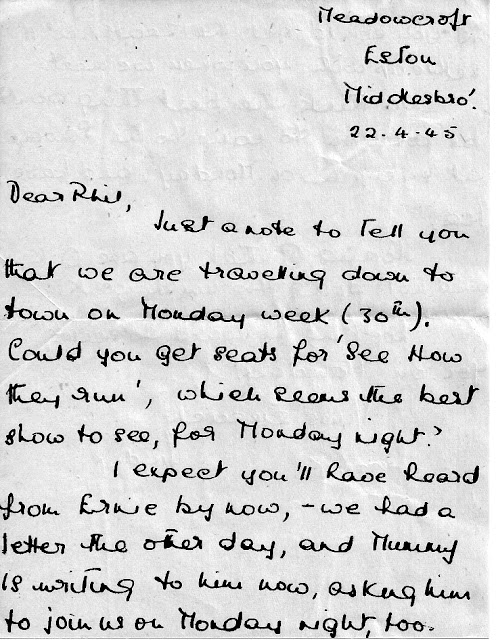 Meadowcroft
Eston
Middlesbro'.
22.4.45
Dear Phil,
Just a note to tell you
that we are travelling down to
town on Monday week (30th).
Could you get seats for 'See How
they run', which seems the best
show to see, for Monday night?
I expect you'll have heard
from Ernie by now, - we had a
letter the other day, and Mummy
is writing to him now, asking him
to join us on Monday night, too.